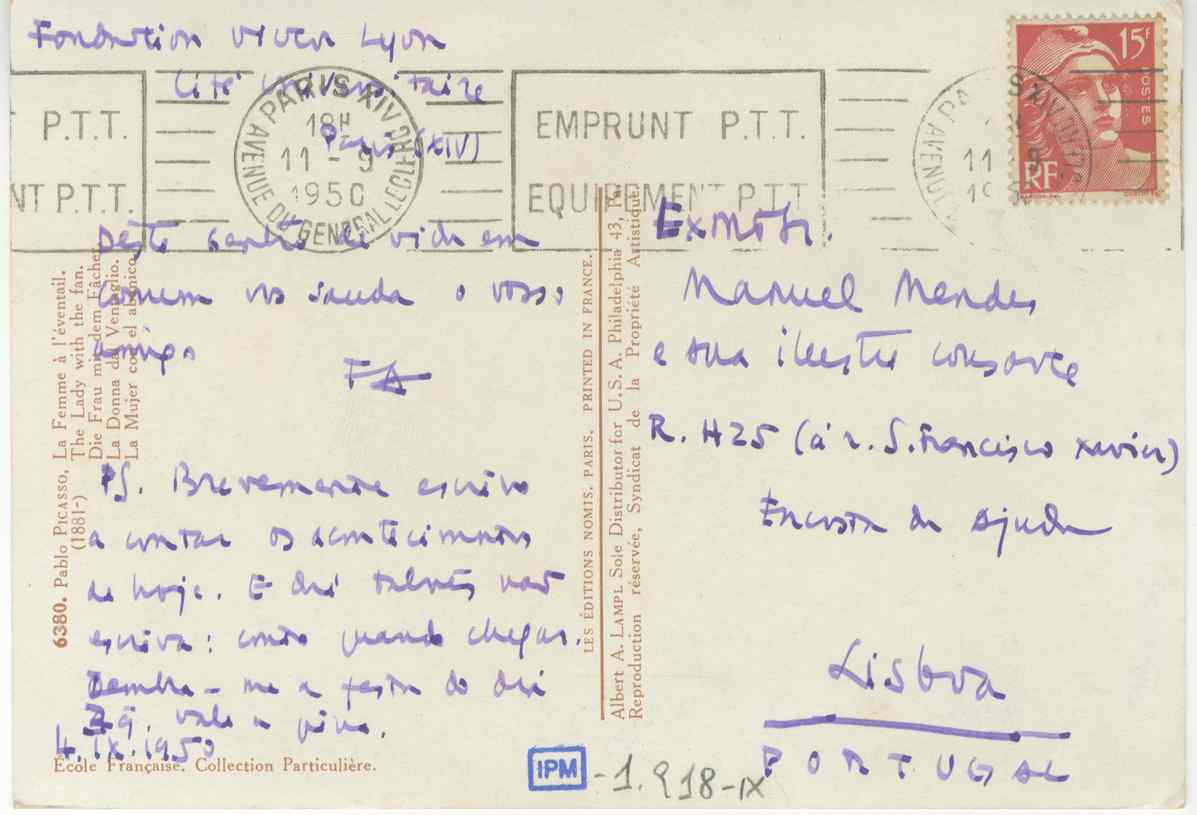 Fondation Viver Lyon
Cité universitaire
Paris (XIV)
P.T.T.
NT P.T.T.
PARIS XIV
18H
11 - 9
1950
AVENUE DU GENERAL LECLERC
EMPRUNT P.T.T.
EQUIPEMENT P.T.T.
15F
POSTES
RF
de vida em
comum vos saúda o vosso
amigo
FA
PS. Brevemente escrevo
a contar os acontecimentos
de hoje. E daí talvez não
escreva: conto quando chegar.
Lembra-me a festa do dia
29. Vale a pena.
4.IX.1950
Exmº Sr.
Manuel Mendes
e sua ilustre consorte
R. H25 (à r. S. Francisco Xavier)
Encosta da Ajuda
Lisboa
PORTUGAL
6380. Pablo PICASSO. La Femme à l'éventail.
(1881-) The Lady with the fan.
Die Frau mit dem Fächer.
La Donna dal Ventaglio.
La Mujer con el abanico.
LES ÉDITIONS NOMIS. PARIS. PRINTED IN FRANCE.
Albert A. LAMPL Sole Distributor for U.S.A. Philadelphia 43, Pa.
Reproduction réservée, Syndicat de la Propriété Artistique.
École Française. Collection Particulière.
IPM -1.918-IX